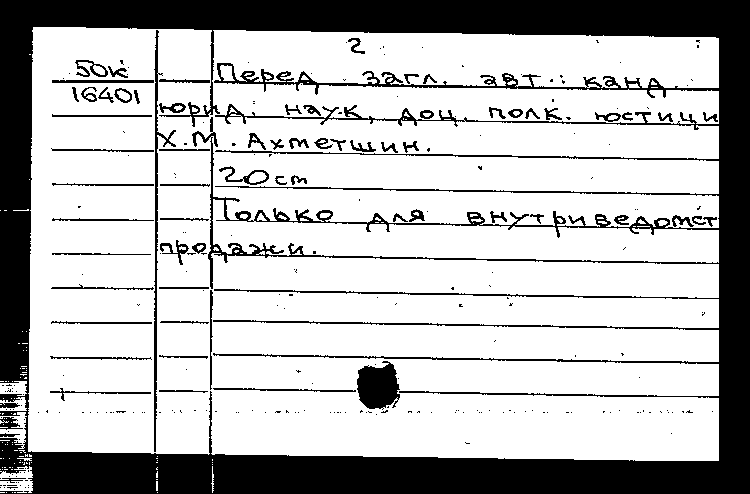 2
50к Перед загл. авт.: канд.
16401 юрид. наук, доц. полк. юстици
Х.М. Ахметшин.
20 cm
Только для внутриведомст
продажи.